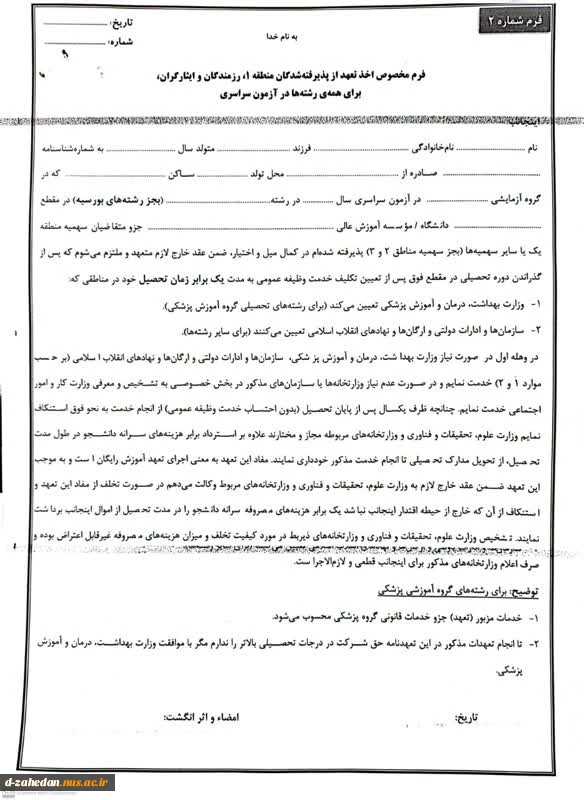 فرم شماره ۲
به نام خدا
تاریخ:
شماره:
فرم مخصوص اخذ تعهد از پذیرفته‌شدگان منطقه ۱، رزمندگان و ایثارگران،
برای همه‌ی رشته‌ها در آزمون سراسری
اینجانب
نام ............ نام‌خانوادگی ............ فرزند ............ متولد سال ............ به شماره‌شناسنامه
............ صادره از ............ محل تولد ............ ساکن ............ که در
گروه آزمایشی ............ در آزمون سراسری سال ............ در رشته ............ (بجز رشته‌های بورسیه) در مقطع
............ دانشگاه / مؤسسه آموزش عالی ............ جزو متقاضیان سهمیه منطقه
یک یا سایر سهمیه‌ها (بجز سهمیه مناطق ۲ و ۳) پذیرفته شده‌ام در کمال میل و اختیار، ضمن عقد خارج لازم متعهد و ملتزم می‌شوم که پس از
گذراندن دوره تحصیلی در مقطع فوق پس از تعیین تکلیف خدمت وظیفه عمومی به مدت یک برابر زمان تحصیل خود در مناطقی که:
۱- وزارت بهداشت، درمان و آموزش پزشکی تعیین می‌کند (برای رشته‌های تحصیلی گروه آموزش پزشکی).
۲- سازمان‌ها و ادارات دولتی و ارگان‌ها و نهادهای انقلاب اسلامی تعیین می‌کنند (برای سایر رشته‌ها).
در وهله اول در صورت نیاز وزارت بهداشت، درمان و آموزش پزشکی، سازمان‌ها و ادارات دولتی و ارگان‌ها و نهادهای انقلاب اسلامی (بر حسب
موارد ۱ و ۲) خدمت نمایم و در صورت عدم نیاز وزارتخانه‌ها یا سازمان‌های مذکور در بخش خصوصی به تشخیص و معرفی وزارت کار و امور
اجتماعی خدمت نمایم. چنانچه ظرف یکسال پس از پایان تحصیل (بدون احتساب خدمت وظیفه عمومی) از انجام خدمت به نحو فوق استنکاف
نمایم وزارت علوم، تحقیقات و فناوری و وزارتخانه‌های مربوطه مجاز و مختارند علاوه بر استرداد برابر هزینه‌های سرانه دانشجو در طول مدت
تحصیل، از تحویل مدارک تحصیلی تا انجام خدمت مذکور خودداری نمایند. مفاد این تعهد به معنی اجرای تعهد آموزش رایگان است و به موجب
این تعهد ضمن عقد خارج لازم به وزارت علوم، تحقیقات و فناوری و وزارتخانه‌های مربوط وکالت می‌دهم در صورت تخلف از مفاد این تعهد و
استنکاف از آن که خارج از حیطه اقتدار اینجانب نباشد یک برابر هزینه‌های مصروفه سرانه دانشجو را در مدت تحصیل از اموال اینجانب برداشت
نمایند. تشخیص وزارت علوم، تحقیقات و فناوری و وزارتخانه‌های ذیربط در مورد کیفیت تخلف و میزان هزینه‌های مصروفه غیرقابل اعتراض بوده و
صرف اعلام وزارتخانه‌های مذکور برای اینجانب قطعی و لازم‌الاجراست.
توضیح: برای رشته‌های گروه آموزشی پزشکی
۱- خدمات مزبور (تعهد) جزو خدمات قانونی گروه پزشکی محسوب می‌شود.
۲- تا انجام تعهدات مذکور در این تعهدنامه حق شرکت در درجات تحصیلی بالاتر را ندارم مگر با موافقت وزارت بهداشت، درمان و آموزش
پزشکی.
تاریخ:
امضاء و اثر انگشت:
d-zahedan.nus.ac.ir